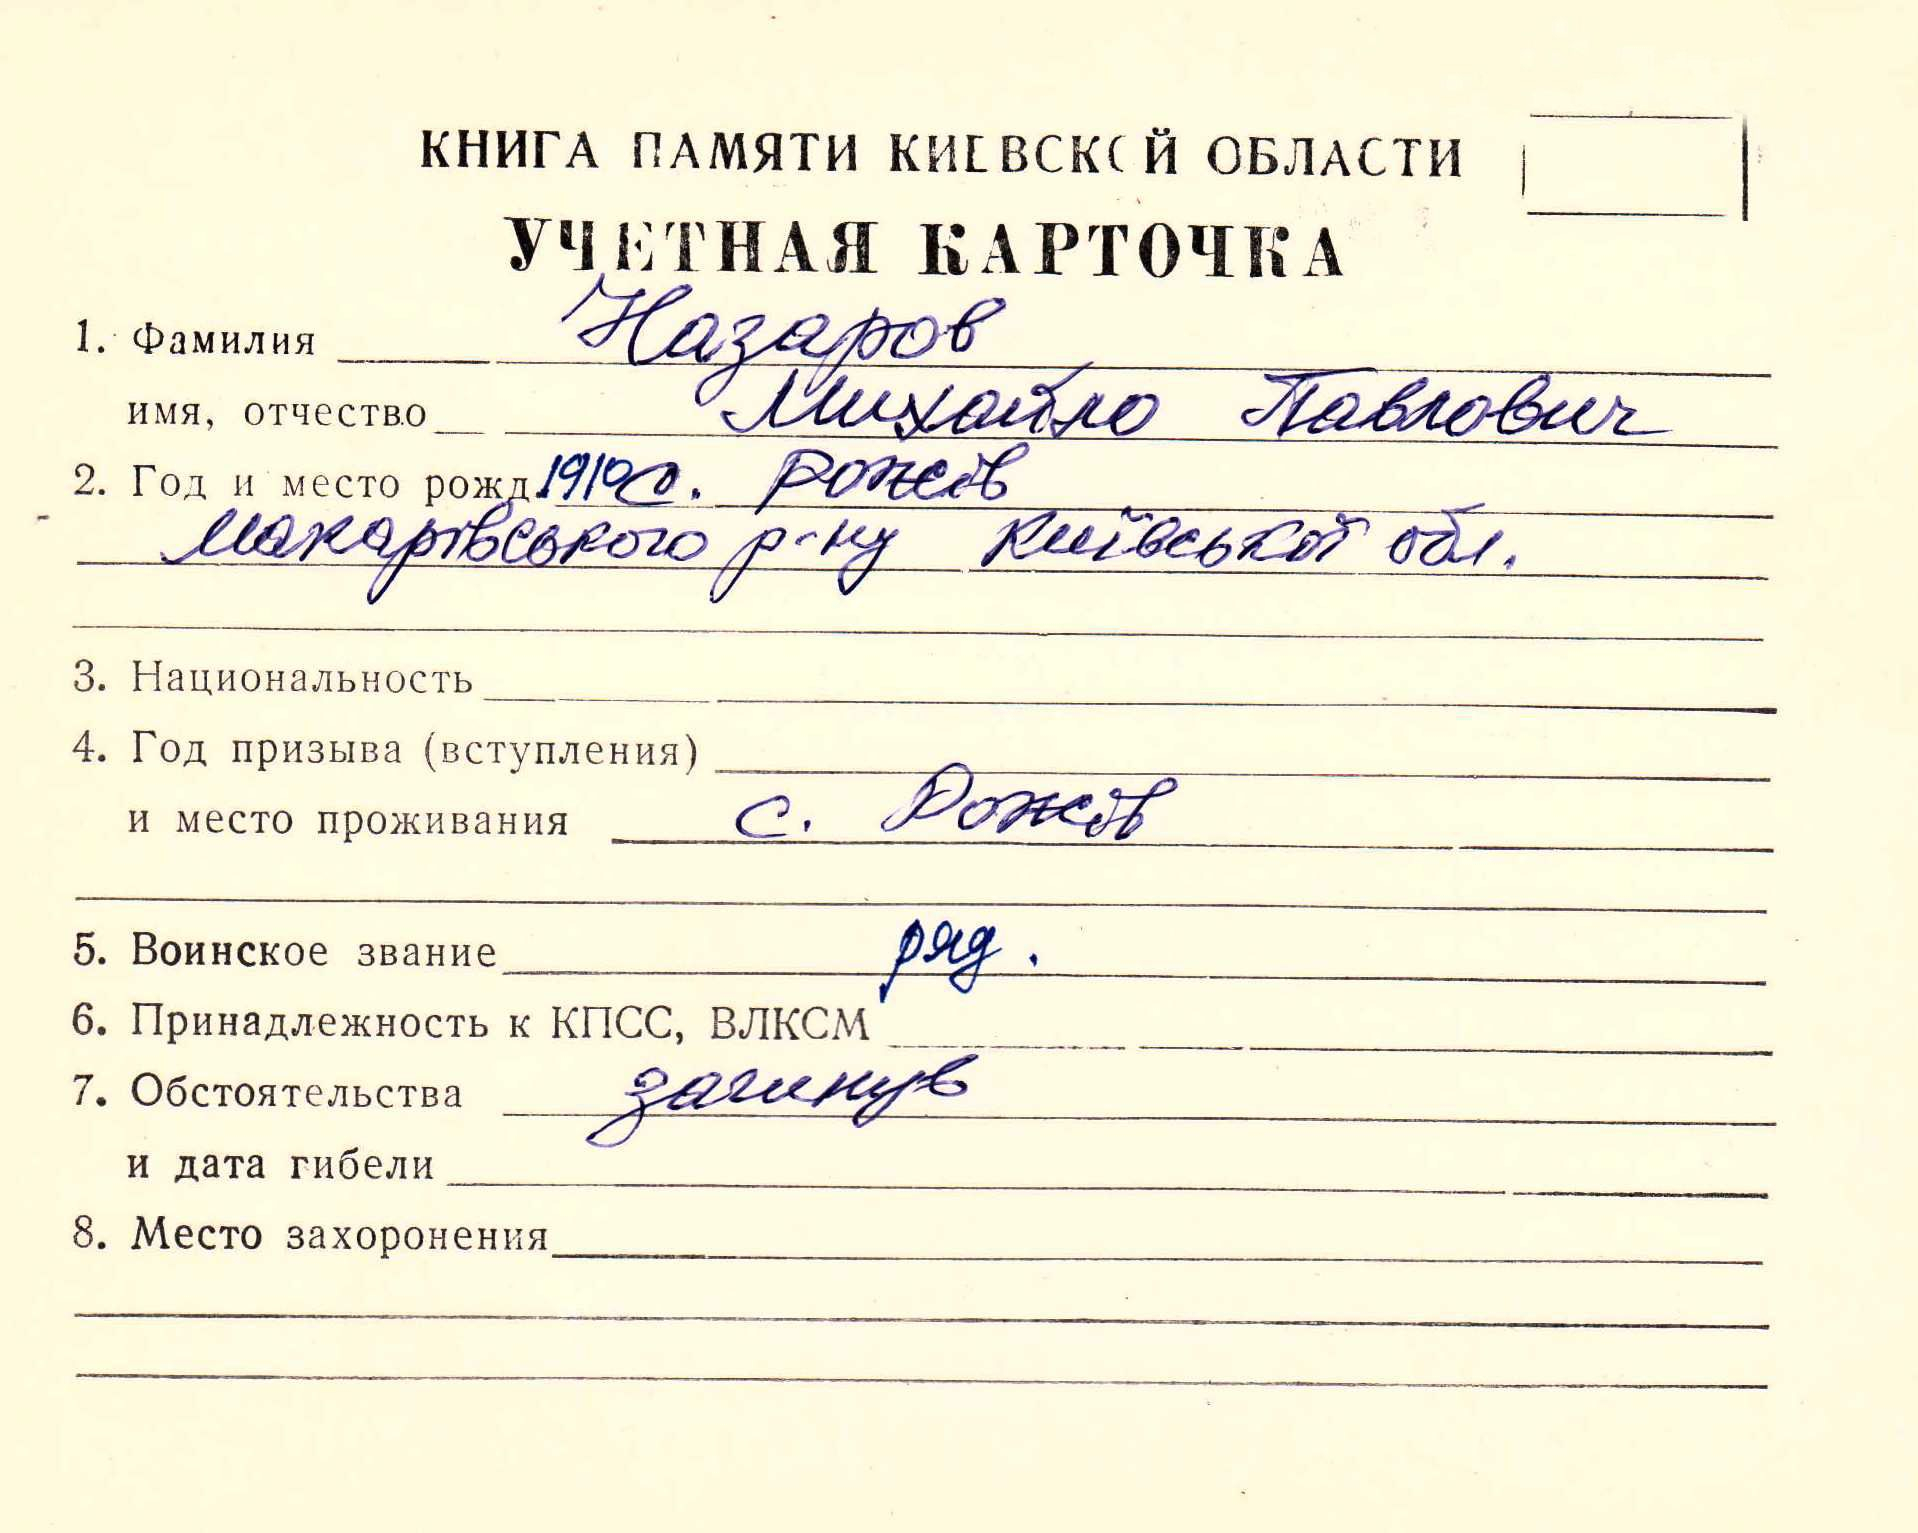 КНИГА ПАМЯТИ КИЕВСКОЙ ОБЛАСТИ
УЧЕТНАЯ КАРТОЧКА
1. Фамилия Назаров
имя, отчество Михайло Павлович
2. Год и место рожд. 1910 с. Рожів
Макарівського р-ну Київської обл.
3. Национальность
4. Год призыва (вступления)
и место проживания с. Рожів
5. Воинское звание ряд.
6. Принадлежность к КПСС, ВЛКСМ
7. Обстоятельства загинув
и дата гибели
8. Место захоронения